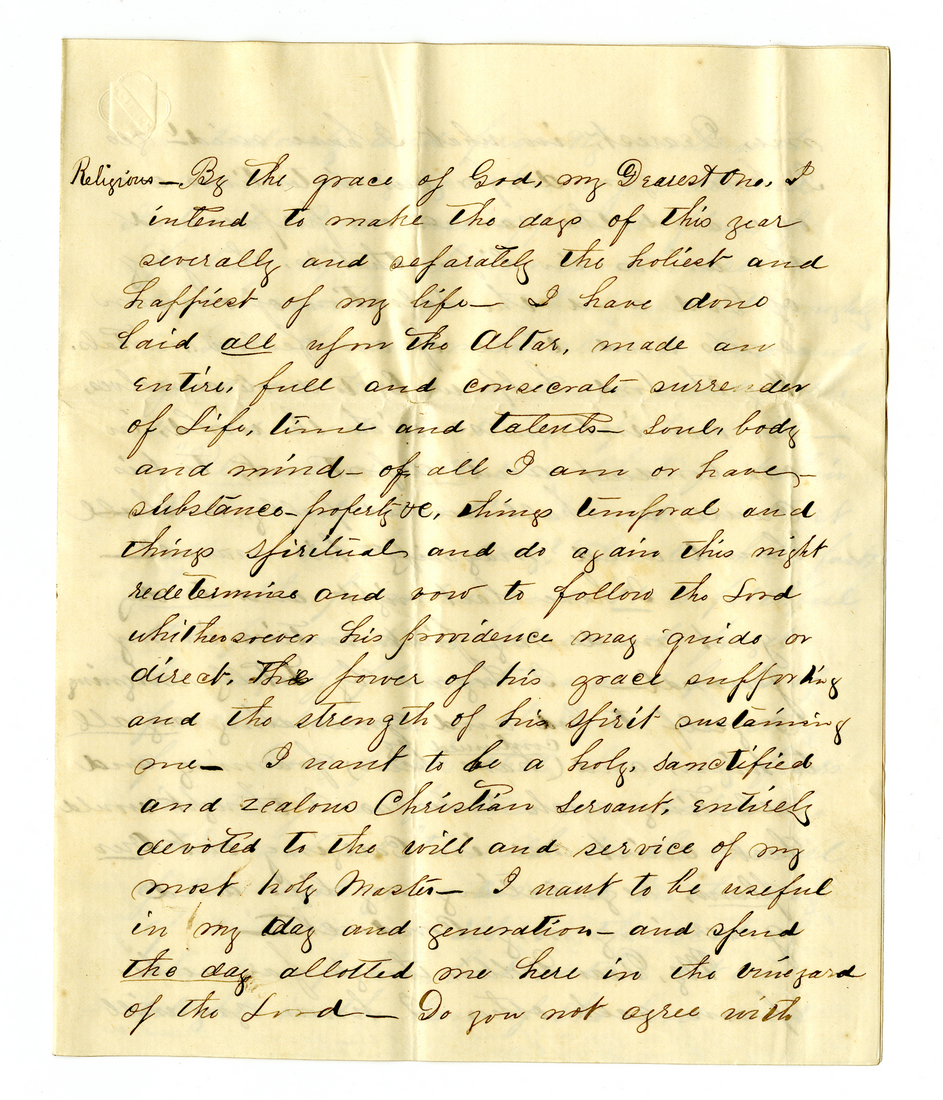 Religious — By the grace of God, my Dearest One, I
intend to make the days of this year
severally and separately the holiest and
happiest of my life — I have done
laid all upon the Altar, made an
entire, full and consecrate surrender
of Life, time and talents — Soul, body
and mind — of all I am or have, —
substance — property &c, things temporal and
things spiritual, and do again this night
redetermine and vow to follow the Lord
whithersoever his providence may guide or
direct. The power of his grace supporting
and the strength of his spirit sustaining
me — I want to be a holy, sanctified
and zealous Christian servant, entirely
devoted to the will and service of my
most holy Master — I want to be useful
in my day and generation — and spend
the day allotted me here in the vineyard
of the Lord — Do you not agree with